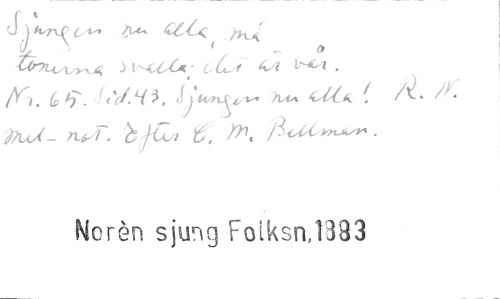 Sjungen nu alla, må
tonerna svalla, det är vår.
Nr. 65. Sid. 43. Sjungen nu alla! R. N.
mel-not. Efter C. M. Bellman.
Norèn sjung Folksn,1883